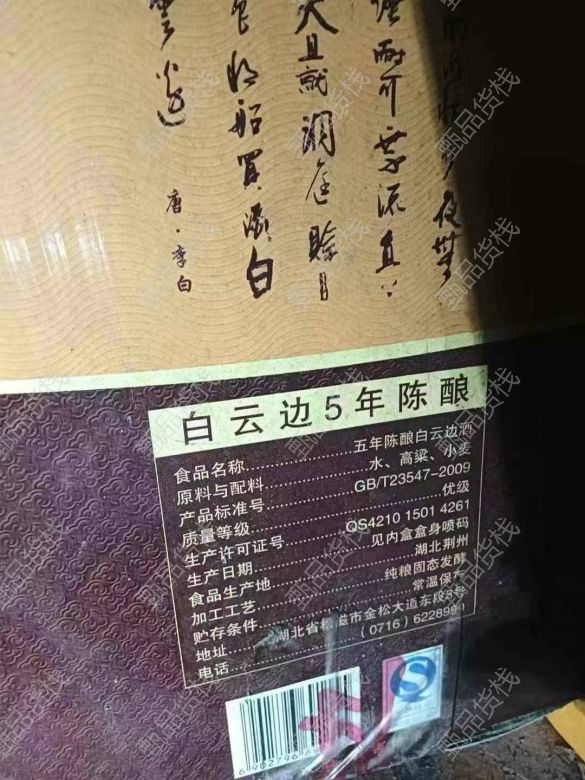 南湖秋水夜無煙
耐可乘流直上天
且就洞庭賒月色
將船買酒白雲邊
唐·李白
白云边5年陈酿
食品名称……五年陈酿白云边酒
原料与配料……水、高粱、小麦
产品标准号……GB/T23547-2009
质量等级……优级
生产许可证号……QS4210 1501 4261
生产日期……见内盒盒身喷码
食品生产地……湖北荆州
加工工艺……纯粮固态发酵
贮存条件……常温保存
地址……湖北省松滋市金松大道东段8号
电话……(0716) 6228991
6 902796
甄品货栈